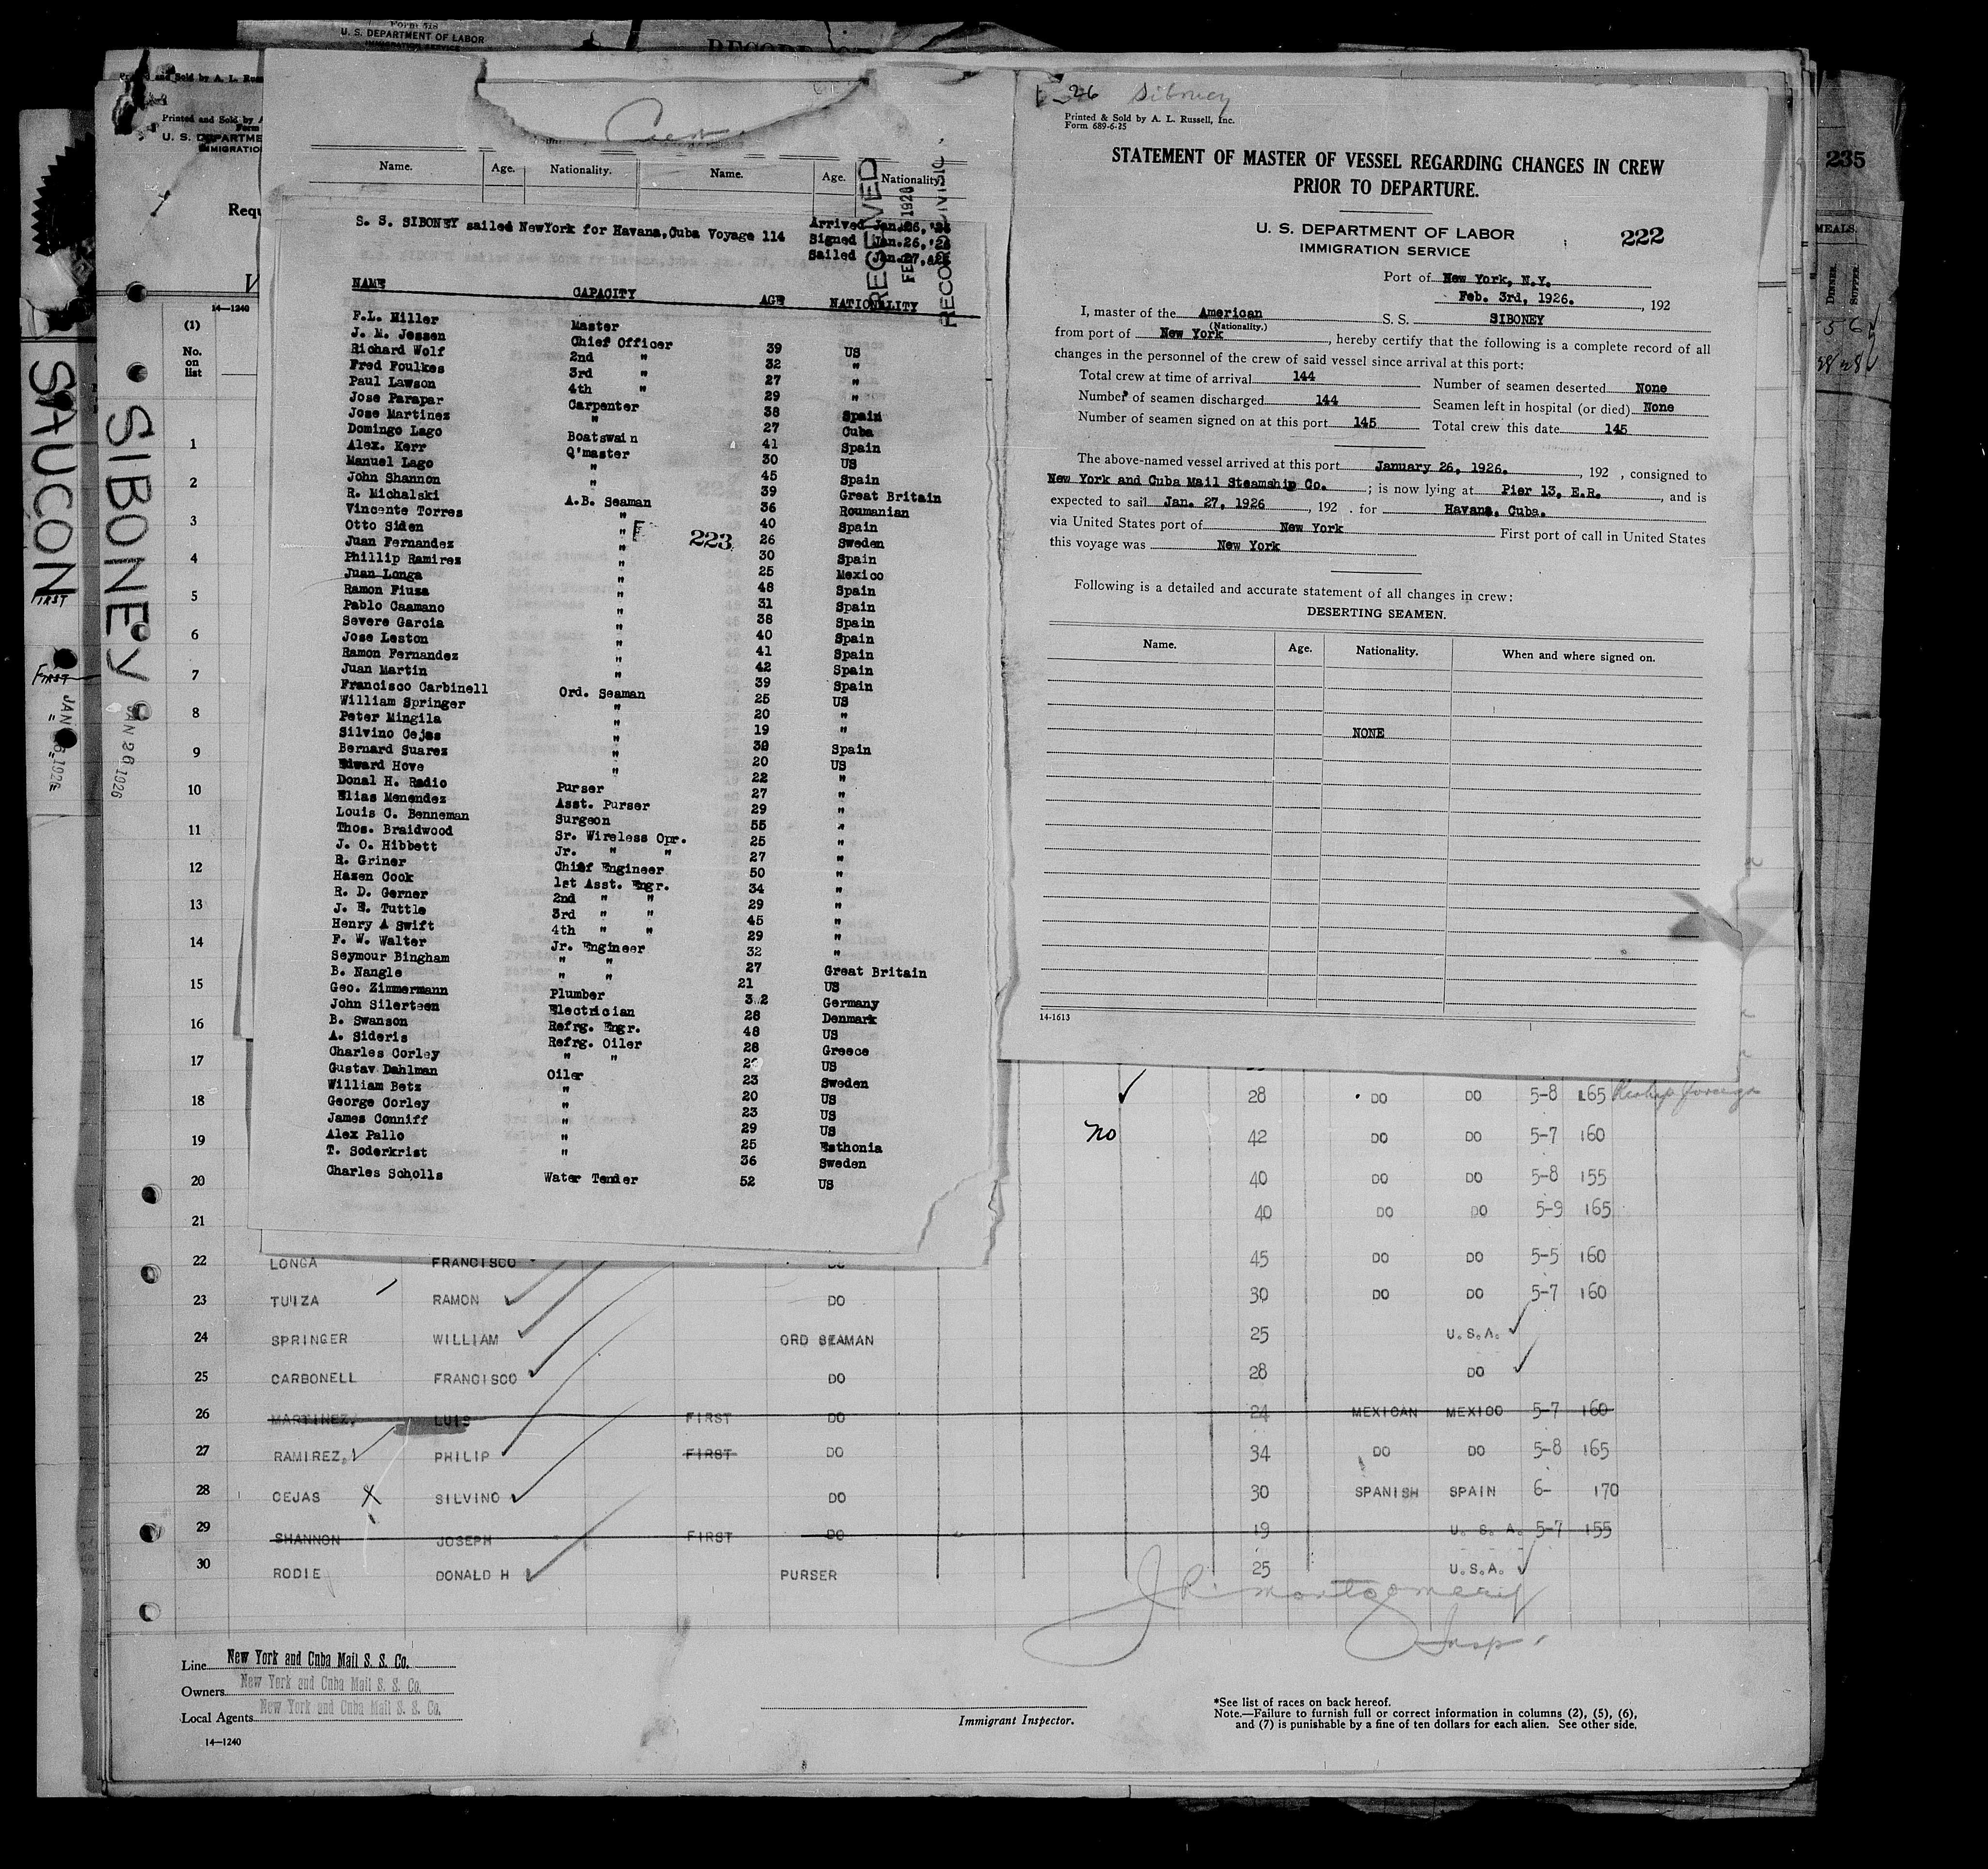 Form 518
U. S. DEPARTMENT OF LABOR
IMMIGRATION SERVICE
Printed and Sold by A. L. Russ
Printed and Sold by A
Form
U. S. DEPARTME
IMMIGRATIO
Requ
V
14—1240
(1)
No.
on
list
SAUCON
FIRST
FIRST
SIBONEY
JAN 26 1926
Name. Age. Nationality. Name. Age. Nationality
RECEIVED
FEB 1926
RECORD DIVISIO
S. S. SIBONEY sailed NewYork for Havana,Cuba Voyage 114
Arrived Jan.26,'26
Signed Jan.26,'26
Sailed Jan.27,
NAME CAPACITY AGE NATIONALITY
F.L. Miller Master
J. M. Jessen Chief Officer 39 US
Richard Wolf 2nd " 32 "
Fred Foulkes 3rd " 27 "
Paul Lawson 4th " 29 "
Jose Parapar Carpenter 38 Spain
Jose Martinez " 27 Cuba
Domingo Lago Boatswain 41 Spain
Alex. Kerr Q'master 30 US
Manuel Lago " 45 Spain
John Shannon " 39 Great Britain
R. Michalski A.B. Seaman 36 Roumanian
Vincente Torres " 40 Spain
Otto Siden " 26 Sweden
Juan Fernandez " 30 Spain
Phillip Ramirez " 25 Mexico
Juan Longa " 48 Spain
Ramon Fiuza " 31 Spain
Pablo Caamano " 38 Spain
Severe Garcia " 40 Spain
Jose Leston " 41 Spain
Ramon Fernandez " 42 Spain
Juan Martin " 39 Spain
Francisco Carbinell Ord. Seaman 25 US
William Springer " 20 "
Peter Mingila " 19 "
Silvino Cejas " 30 Spain
Bernard Suarez " 20 US
Edward Hove " 22 "
Donal H. Radio Purser 27 "
Elias Menendez Asst. Purser 29 "
Louis C. Benneman Surgeon 55 "
Thos. Braidwood Sr. Wireless Opr. 25 "
J. O. Hibbett Jr. " " 27 "
R. Griner Chief Engineer 50 "
Hazen Cook 1st Asst. Engr. 34 "
R. D. Gerner 2nd " " 29 "
J. E. Tuttle 3rd " " 45 "
Henry A Swift 4th " " 29 "
F. W. Walter Jr. Engineer 32 "
Seymour Bingham " " 27 Great Britain
B. Nangle " " 21 US
Geo. Zimmermann Plumber 32 Germany
John Silerteen Electrician 28 Denmark
B. Swanson Refrg. Engr. 48 US
A. Sideris Refrg. Oiler 28 Greece
Charles Corley " " US
Gustav Dahlman Oiler 23 Sweden
William Betz " 20 US
George Corley " 23 US
James Conniff " 29 US
Alex Pallo " 25 Esthonia
T. Soderkrist " 36 Sweden
Charles Scholls Water Tender 52 US
223
26 Siboney
Printed & Sold by A. L. Russell, Inc.
Form 689-6-25
STATEMENT OF MASTER OF VESSEL REGARDING CHANGES IN CREW
PRIOR TO DEPARTURE.
U. S. DEPARTMENT OF LABOR
IMMIGRATION SERVICE
222
Port of New York, N.Y.
Feb. 3rd, 1926. , 192
I, master of the American S. S. SIBONEY
(Nationality.)
from port of New York , hereby certify that the following is a complete record of all
changes in the personnel of the crew of said vessel since arrival at this port:
Total crew at time of arrival 144 Number of seamen deserted None
Number of seamen discharged 144 Seamen left in hospital (or died) None
Number of seamen signed on at this port 145 Total crew this date 145
The above-named vessel arrived at this port January 26, 1926. , 192 , consigned to
New York and Cuba Mail Steamship Co. ; is now lying at Pier 13, E.R. , and is
expected to sail Jan. 27, 1926 , 192 . for Havana, Cuba.
via United States port of New York First port of call in United States
this voyage was New York
Following is a detailed and accurate statement of all changes in crew:
DESERTING SEAMEN.
Name. Age. Nationality. When and where signed on.
NONE
14-1613
235
MEALS.
DINNER.
SUPPER.
1
2
3
4
5
6
7
8
9
10
11
12
13
14
15
16
17
18 28 DO DO 5-8 165
19 no 42 DO DO 5-7 160
20 40 DO DO 5-8 155
21 40 DO DO 5-9 165
22 LONGA FRANCISCO DO 45 DO DO 5-5 160
23 TUIZA RAMON DO 30 DO DO 5-7 160
24 SPRINGER WILLIAM ORD SEAMAN 25 U.S.A.
25 CARBONELL FRANCISCO DO 28 DO
26 MARTINEZ, LUIS FIRST DO 24 MEXICAN MEXICO 5-7 160
27 RAMIREZ, PHILIP FIRST DO 34 DO DO 5-8 165
28 CEJAS X SILVINO DO 30 SPANISH SPAIN 6- 170
29 SHANNON JOSEPH FIRST DO 19 U. S. A. 5-7 155
30 RODIE DONALD H PURSER 25 U.S.A.
J R Montgomery
Insp.
Line New York and Cuba Mail S. S. Co.
Owners New York and Cuba Mail S. S. Co.
Local Agents New York and Cuba Mail S. S. Co.
14—1240
Immigrant Inspector.
*See list of races on back hereof.
Note.—Failure to furnish full or correct information in columns (2), (5), (6),
and (7) is punishable by a fine of ten dollars for each alien. See other side.